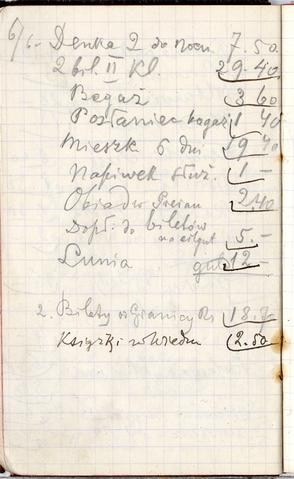 6/6 - Denka 2 do 7.50
2 bil. II Kl. 29.40
Bagaż 3 60
Posłaniec bagaż 1 40
Mieszk 6 dni 19 40
Napiwek służ. 1 -
Obiad w 2.40
Dopł. do biletów
5. -
Lunia 12 -
2. Bilety od Granicy 18.
Książki w Wiedniu 2.50